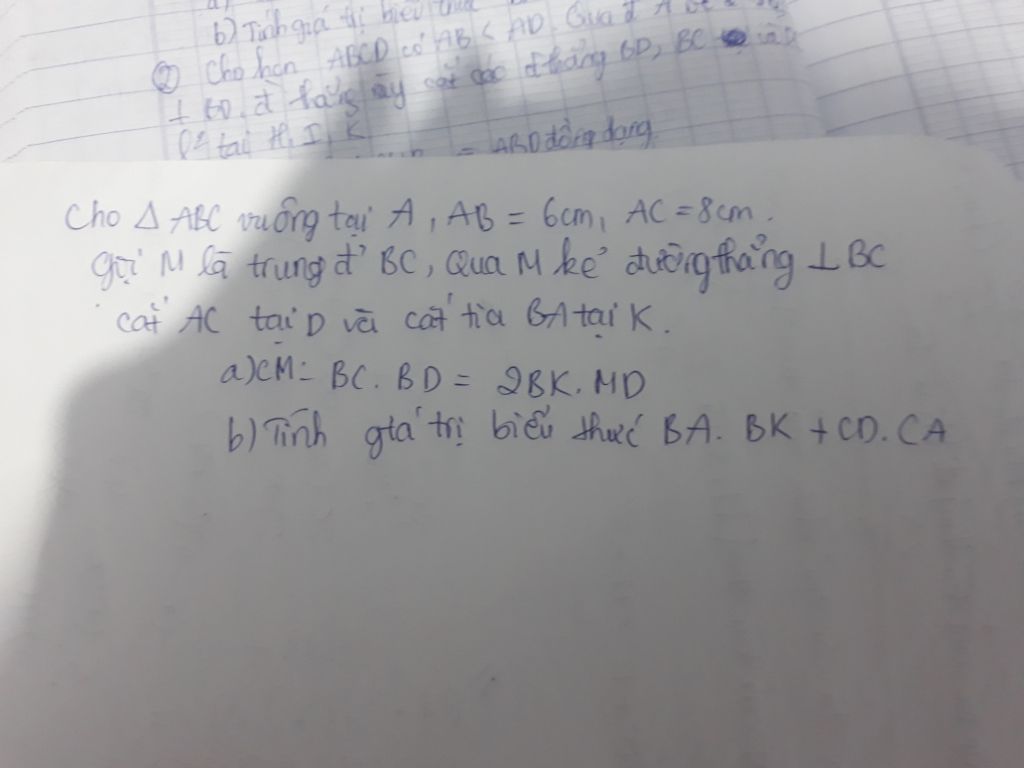 b) Tính giá trị biểu thức
② Cho hcn ABCD có AB < AD. Qua đ A
⊥ BD. đ thẳng này cắt các đ thẳng BD, BC
tại H, I, K
= ABD đồng dạng
Cho △ ABC vuông tại A, AB = 6cm, AC = 8cm.
Gọi M là trung đ' BC, Qua M kẻ đường thẳng ⊥ BC
cắt AC tại D và cắt tia BA tại K.
a) CM: BC. BD = 2BK. MD
b) Tính giá trị biểu thức BA. BK + CD. CA